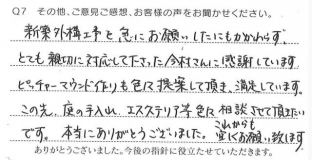 Q7 その他、ご意見ご感想、お客様の声をお聞かせください。
新築外構工事と急にお願いしたにもかかわらず、
とても親切に対応して下さった今村さんに感謝しています。
ピッチャーマウンド作りも色々提案して頂き、満足しています。
この先、庭の手入れ、エステリア等色々相談させて頂きたい
です。本当にありがとうございました。これからも宜しくお願い致します
ありがとうございました。今後の指針に役立たせていただきます。